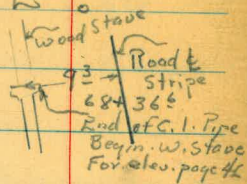 Wood Stave
Road ℄
Stripe
9 3
68+36 6
End of C.I. Pipe
Begin. W. Stave
For elev. page 46